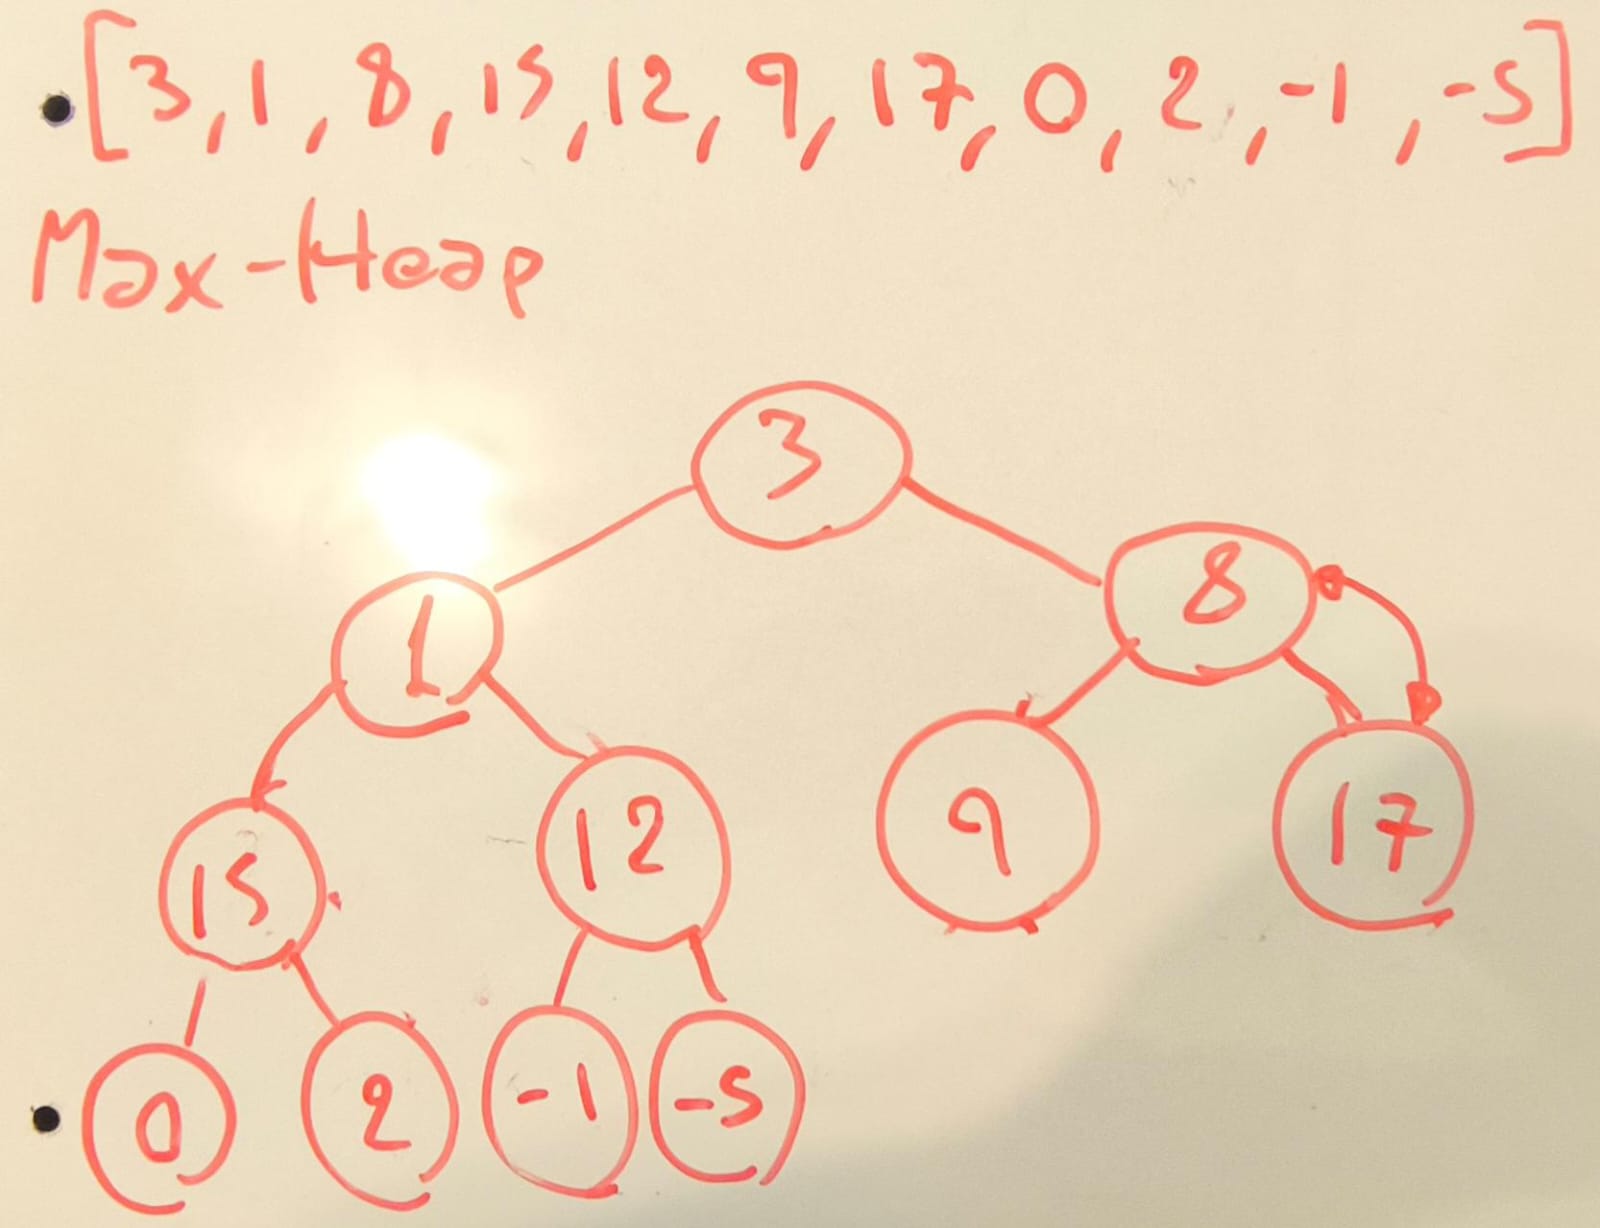 [3, 1, 8, 15, 12, 9, 17, 0, 2, -1, -5]
Max-Heap
3
1 8
15 12 9 17
0 2 -1 -5